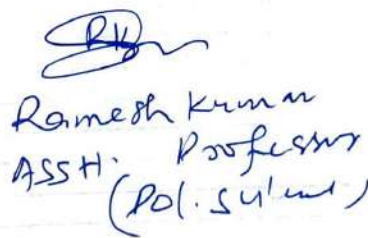 Ramesh Kumar
ASStt. Professor
(Pol. Science)